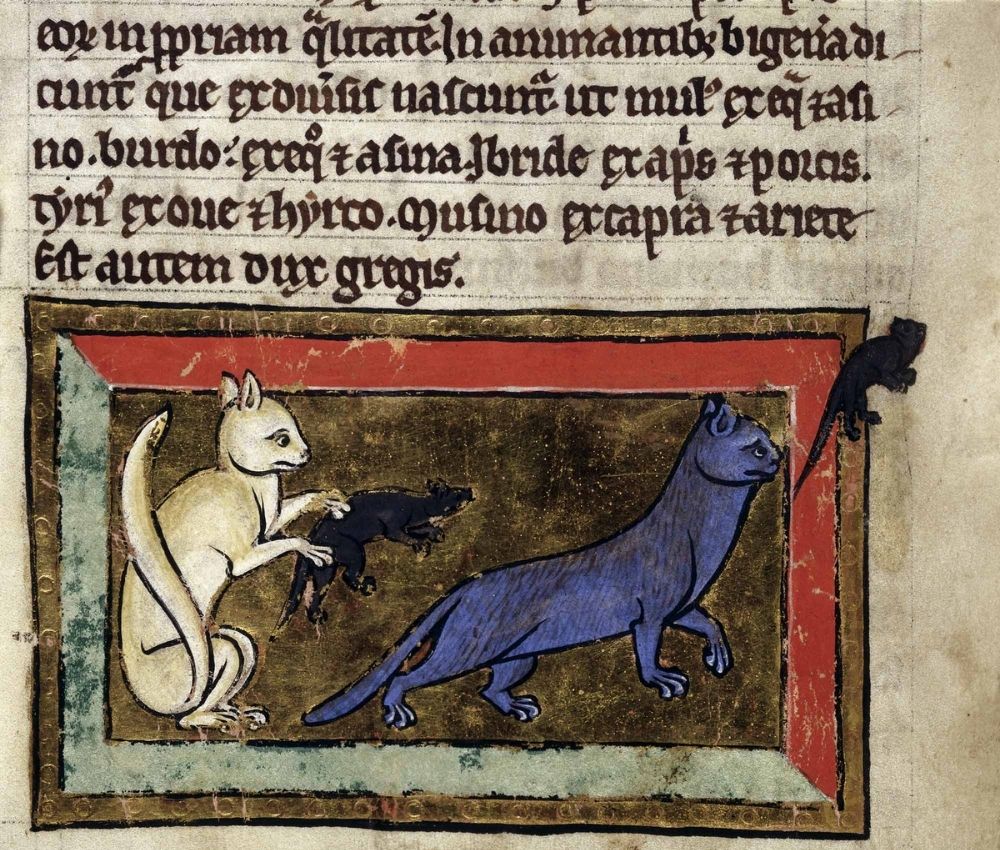 eoꝝ in ꝓpriam q̃litatẽ. In animantibꝫ bigena di
cunt̃ que ex diuẽsis nascunt̃ ut mulꝰ ex eq̃ ⁊ asi
no. burdo: ex eqͦ ⁊ asina. Ibride ex ap̃s ⁊ porcis.
tyriꝰ ex oue ⁊ hyrco. Musino ex capra ⁊ ariete
Est autem dux gregis.